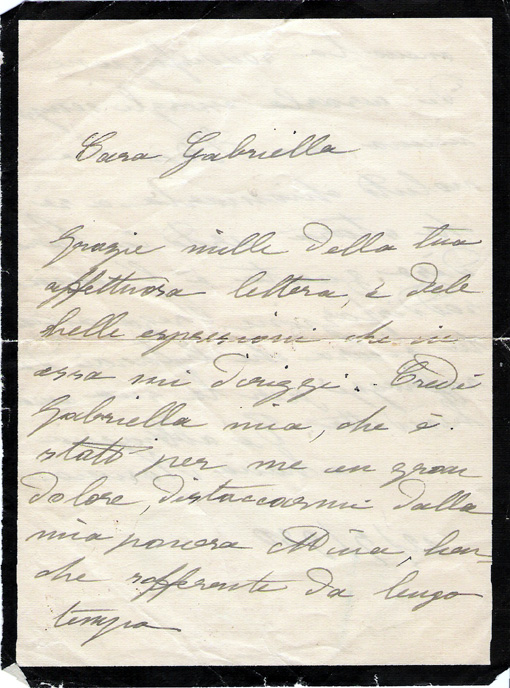 Cara Gabriella
Grazie mille della tua
affettuosa lettera, e dele
belle espressioni che in
essa mi dirigi. Credi
Gabriella mia, che è
stato per me un gran
dolore, distaccarmi dalla
mia povera Nina, ben-
che sofferente da lungo
tempo